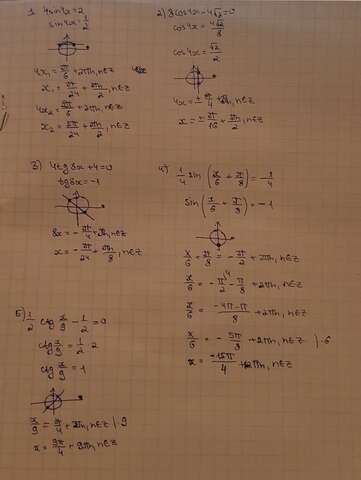 1. 4sin4x=2
sin4x=1/2
4x₁=π/6+2πn, n∈z
x₁=π/24+πn/2, n∈z
4x₂=5π/6+2πn, n∈z
x₂=5π/24+πn/2, n∈z
2) 8cos4x-4√2=0
cos4x=4√2/8
cos4x=√2/2
4x=±π/4+2πn, n∈z
x=±π/16+πn/2, n∈z
3) 4tg8x+4=0
tg8x=-1
8x=-π/4+πn, n∈z
x=-π/24+πn/8, n∈z
4) 1/4 sin(x/6+π/8)=-1/4
sin(x/6+π/8)=-1
x/6+π/8=-π/2+2πn, n∈z
x/6=-π/2-π/8+2πn, n∈z
x/6=(-4π-π)/8+2πn, n∈z
x/6=-5π/8+2πn, n∈z |·6
x=-15π/4+12πn, n∈z
5) 1/2 ctg x/9-1/2=0
ctg x/9=1/2·2
ctg x/9=1
x/9=π/4+πn, n∈z |·9
x=9π/4+9πn, n∈z